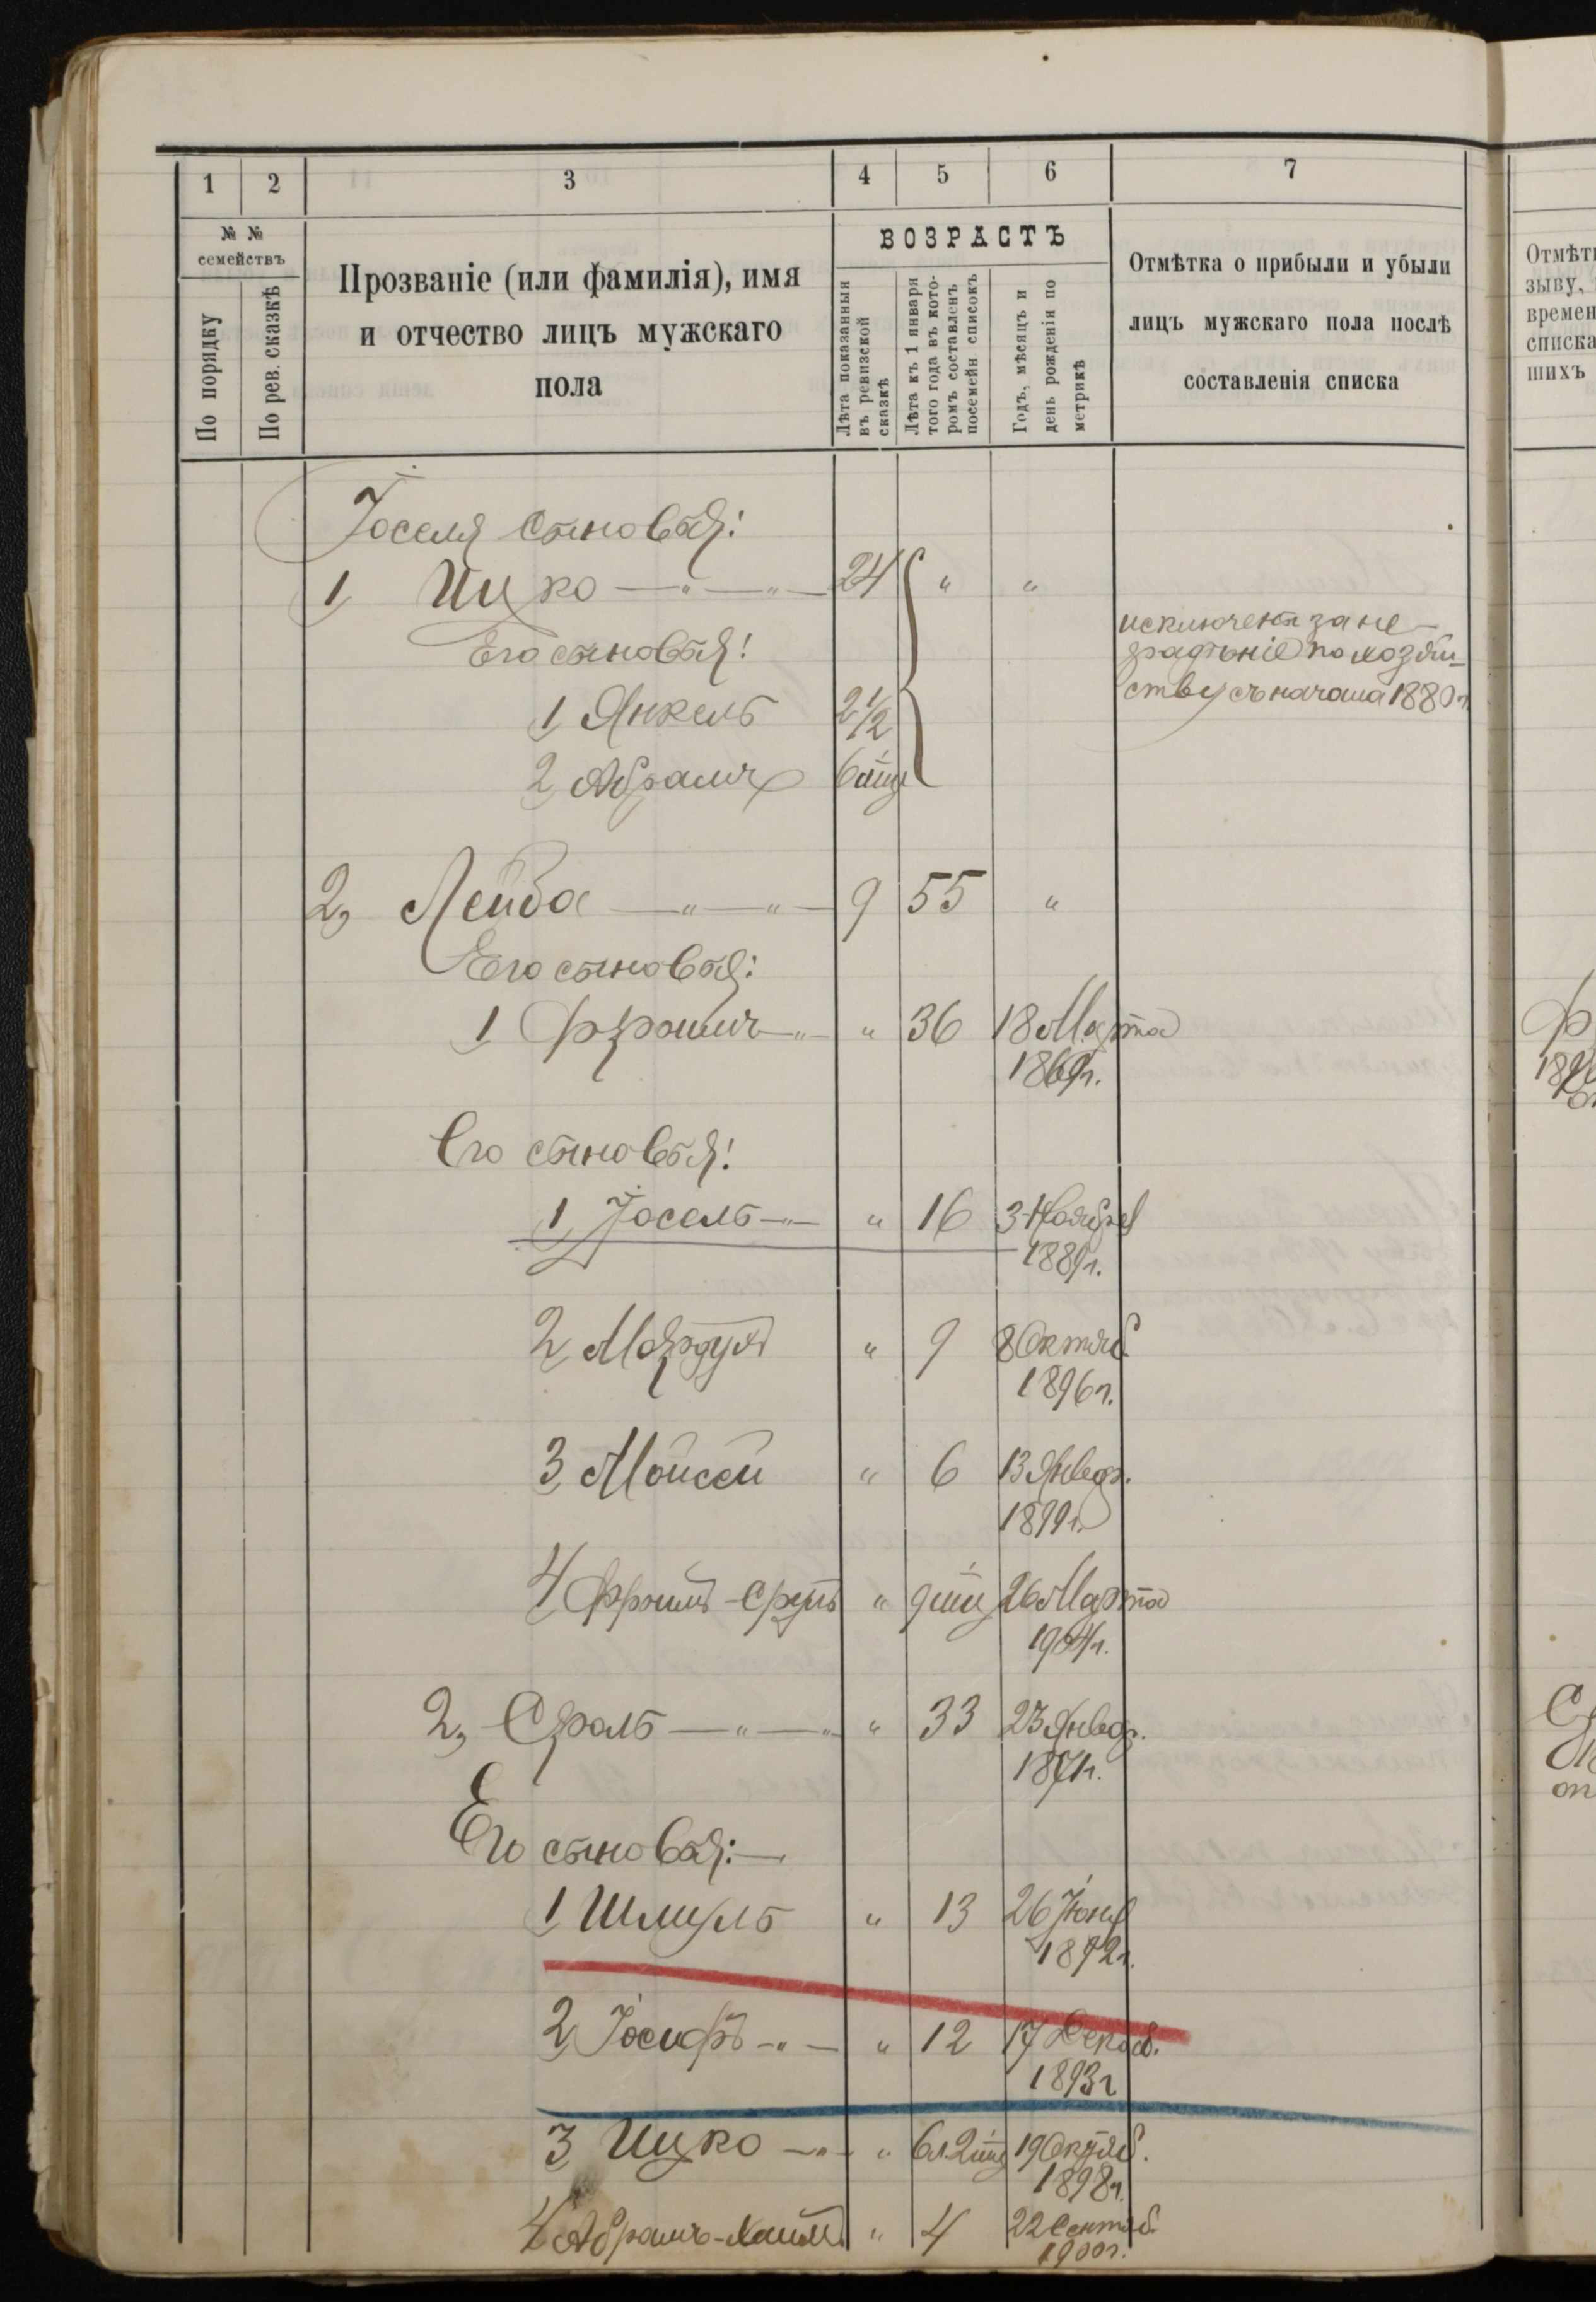 1 2 3 4 5 6 7
№ №
семействъ
По порядку
По рев. сказкѣ
Прозваніе (или фамилія), имя
и отчество лицъ мужскаго
пола
ВОЗРАСТЪ
Лѣта показанныя
въ ревизской
сказкѣ
Лѣта къ 1 января
того года въ кото-
ромъ составленъ
посемейн списокъ
Годъ, мѣсяцъ и
день рожденія по
метрикѣ
Отмѣтка о прибыли и убыли
лицъ мужскаго пола послѣ
составленія списка
Іоселя сыновья:
1, Ицко —"—"— 24 " "
исключенъ за не-
Его сыновья!
1, Янкель 2 1/2
ству съ начала 1880 г.
2, Абрамъ
2, Лейба —"—"— 9 55 "
Его сыновья:
1, Фроимъ —"— " 36 18 Марта
1869 г.
Его сыновья!
1, Іосель —"— " 16 3 Ноября
1889 г.
2, " 9 8 Октяб.
1896 г.
3, Мойсей " 6 13 Январ.
1899 г.
4, Фроимъ-Сруль " 9 26 Марта
1904 г.
2, Сроль —"—"— " 33 23 Январ.
1871 г.
Его сыновья:—
1, Шмуль " 13 26 Іюня
1892 г.
2, Іосифъ —"— " 12 17 Декаб.
1893 г
3, Ицко —"— " 19 Октяб.
1898 г.
4, Абрамъ-Хаимъ " 4 22 Сентяб.
1900 г.
Отмѣт
зыву,
времен
списка
шихъ